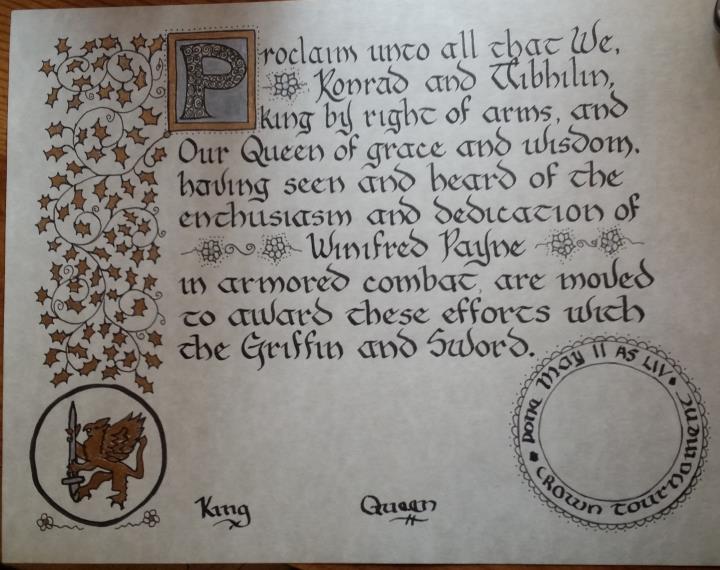 Proclaim unto all that We,
Konrad and Aibhilin,
king by right of arms, and
Our Queen of grace and wisdom,
having seen and heard of the
enthusiasm and dedication of
Winifred Payne
in armored combat, are moved
to award these efforts with
the Griffin and Sword.
Done May 11 AS LIV
Crown Tournament
King
Queen